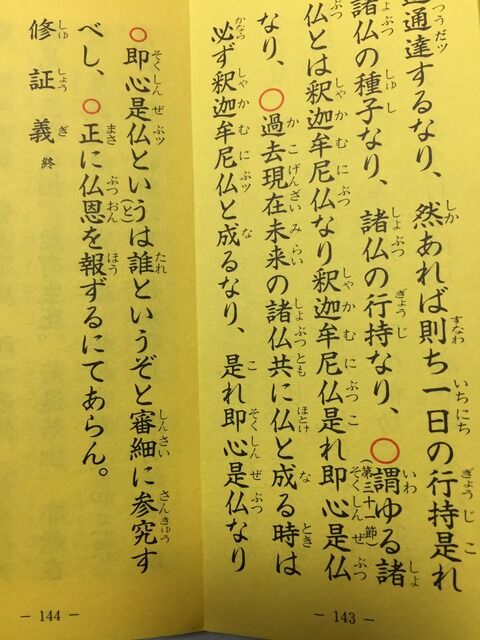 通達するなり、然あれば則ち一日の行持是れ
諸仏の種子なり、諸仏の行持なり、○謂ゆる諸
(第三十一節)
仏とは釈迦牟尼仏なり釈迦牟尼仏是れ即心是仏
なり、○過去現在未来の諸仏共に仏と成る時は
必ず釈迦牟尼仏と成るなり、是れ即心是仏なり
- 143 -
○即心是仏というは誰というぞと審細に参究す
(と)
べし、○正に仏恩を報ずるにてあらん。
修証義 終
- 144 -